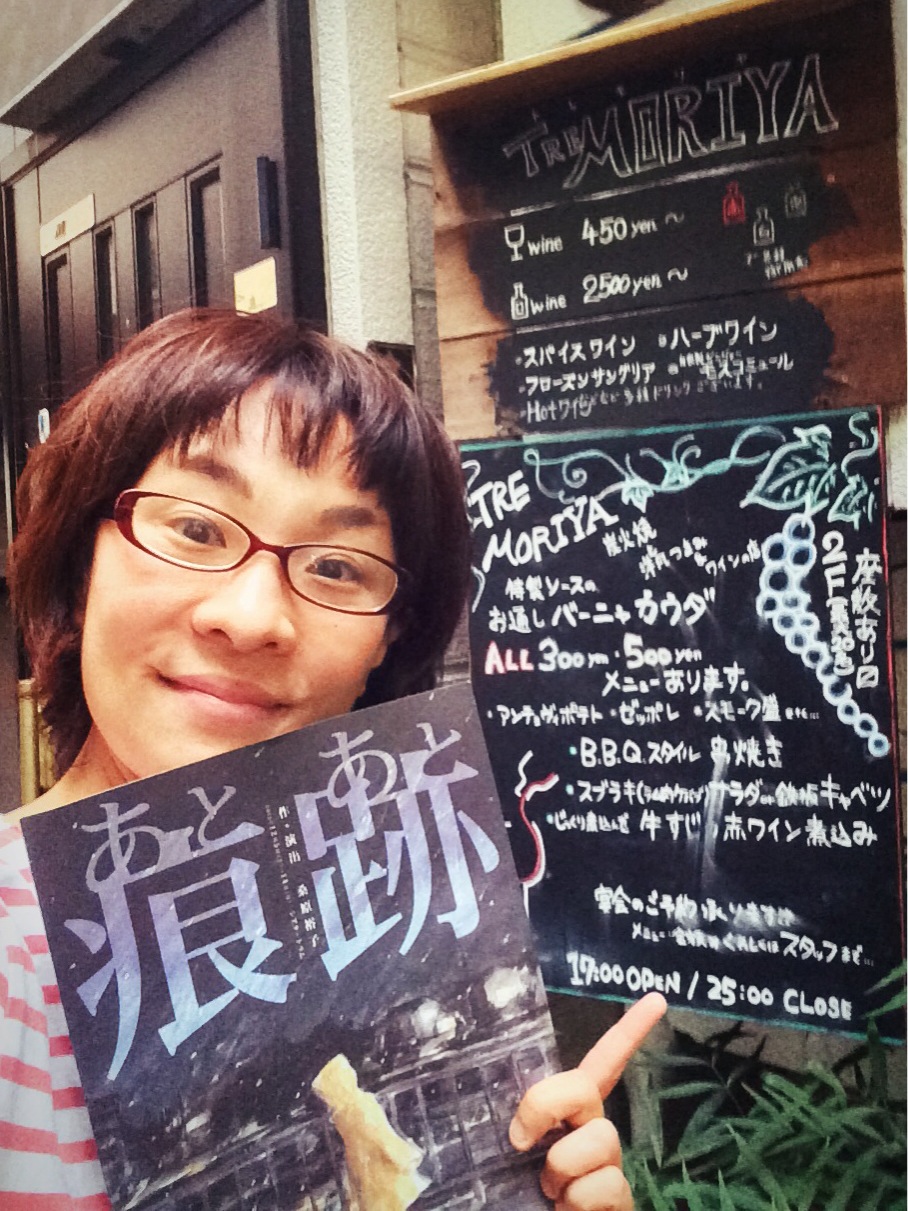 TRE MORIYA
wine 450 yen ~
wine 2500 yen ~
・スパイスワイン
・ハーブワイン
・フローズンサングリア
モスコミュール
・Hotワインなど多種ドリンクございます。
TRE
MORIYA
炭火焼
ワインの店
特製ソースの
お通し バーニャカウダ
ALL 300yen・500yen
メニューあります。
・アンチョヴィポテト ・ゼッポレ ・スモーク盛 etc...
・B.B.Q.スタイル 串焼き
・スブラキ サラダ 鉄板キャベツ
・じっくり煮込んだ 牛すじ 赤ワイン煮込み
宴会のご予約承ります
メニュー くわしくは スタッフまで...
17:00 OPEN / 25:00 CLOSE
座敷あり
2F
あとあと
痕跡
作・演出 桑原裕子